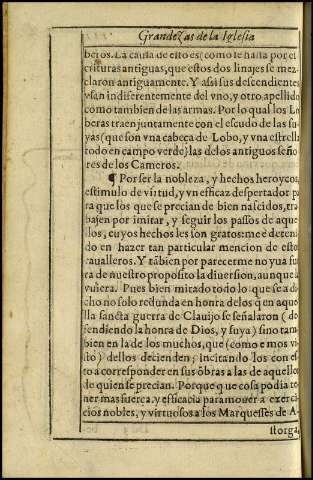 Grandezas de la Iglesia
beros. La causa de esto es (como se halla por es
crituras antiguas, que estos dos linajes se mez
claron antiguamente. Y assi sus descendientes
vsan indiferentemente del vno, y otro apellido
como tambien de las armas. Por lo qual los Li
beras traen juntamente con el escudo de las su
yas (que son vna cabeça de Lobo, y vna estrella
todo en campo verde) las de los antiguos seño
res de los Cameros.
¶ Por ser la nobleza, y hechos heroycos,
estimulo de virtud, y vn efficaz despertador pa
ra que los que se precian de bien nascidos, tra
bajen por imitar, y seguir los passos de aque
llos, cuyos hechos les son gratos: me è deteni
do en hazer tan particular mencion de estos
caualleros. Y tãbien por parecerme no yua fue
ra de nuestro proposito la diuersion, aunque la
vuiera. Pues bien mirado todo lo que se a di
cho no solo redunda en honra de los q̃ en aque
lla sancta guerra de Clauijo se señalaron (de
fendiendo la honra de Dios, y suya) sino tam
bien en la de los muchos, que (como emos vi
sto) dellos decienden, incitando los con es
to a corresponder en sus õbras a las de aquellos
de quien se precian. Porque que cosa podia te
ner mas fuerça, y efficacia para mouer a exerci
cios nobles, y virtuosos a los Marquesses de A-
storga,